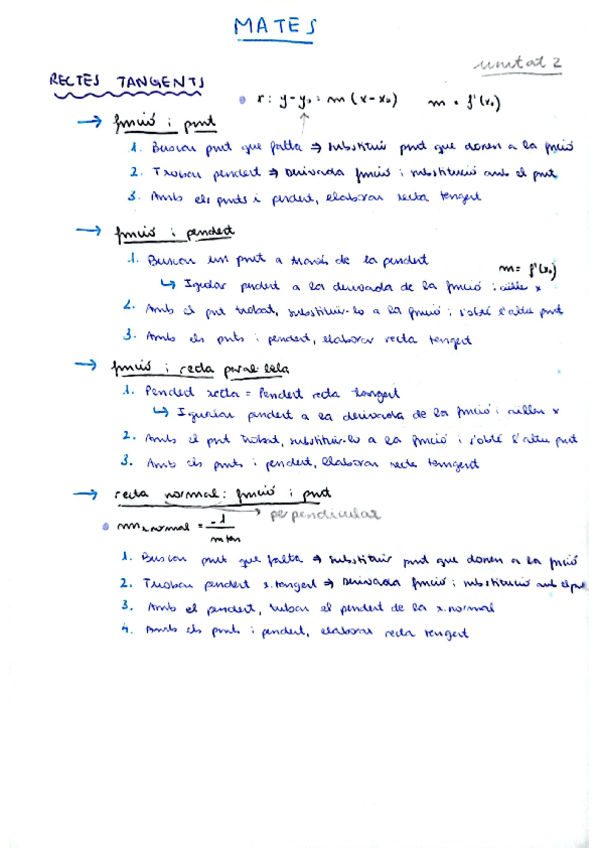 MATES
unitat 2
RECTES TANGENTS
r: y-y₀ = m (x-x₀) m = f'(x₀)
→ funció i punt
1. Buscar punt que falta ⇒ substituir punt que donen a la funció
2. Trobar pendent ⇒ Derivada funció i substitució amb el punt
3. Amb els punts i pendent, elaborar recta tangent
→ funció i pendent
1. Buscar un punt a través de la pendent
m = f'(x₀)
↳ Igualar pendent a la derivada de la funció i aïllar x
2. Amb el punt trobat, substituir-lo a la funció i s'obté l'altre punt
3. Amb els punts i pendent, elaborar recta tangent
→ funció i recta paral·lela
1. Pendent recta = Pendent recta tangent
↳ Igualar pendent a la derivada de la funció i aïllar x
2. Amb el punt trobat, substituir-lo a la funció i s'obté l'altre punt
3. Amb els punts i pendent, elaborar recta tangent
→ recta normal: funció i punt
→ perpendicular
m r.normal = -1 / m tan
1. Buscar punt que falta ⇒ substituir punt que donen a la funció
2. Trobar pendent r.tangent ⇒ Derivada funció i substitució amb el punt
3. Amb el pendent, trobar el pendent de la r.normal
4. Amb els punts i pendent, elaborar recta tangent